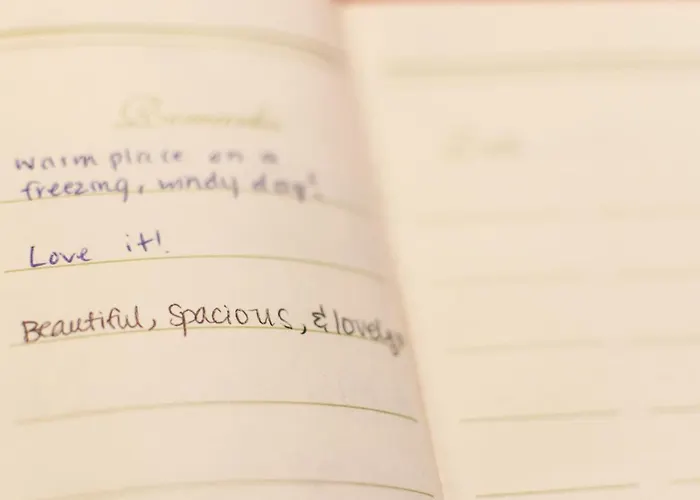 Remarks
warm place on a
freezing, windy day!
Love it!
Beautiful, Spacious, & lovely
Date